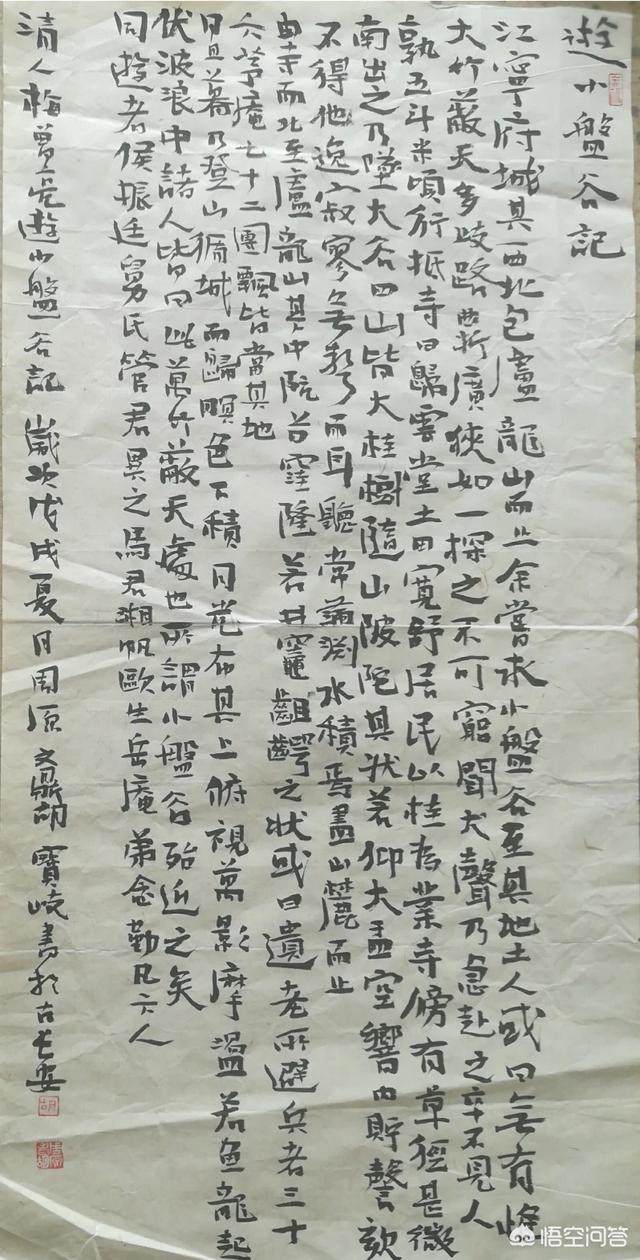 遊小盤谷記
江寧府城其西北包廬龍山而止余嘗求小盤谷至其地土人或曰無有惟
大竹蔽天多歧路曲折廣狹如一探之不可窮聞犬聲乃急赴之卒不見人
孰五斗米頃行抵寺曰歸雲堂土田寬舒居民以桂為業寺傍有草徑甚微
南出之乃墜大谷四山皆大桂樹隨山陂陀其狀若仰大盂空響內貯謦欬
不得他逸寂寥無聲而耳聽常滿淵水積焉盡山麓而止
由寺而北至廬龍山其中阬谷窪隆若井竈齟齶之狀或曰遺老所避兵者三十
六茅庵七十二團瓢皆當其地
日且暮乃登山循城而歸暝色下積月光布其上俯視萬影摩盪若魚龍起
伏波浪中諸人皆曰此萬竹蔽天處也所謂小盤谷殆近之矣
同遊者侯振廷舅氏管君異之馬君湘帆歐生岳庵弟念勤凡六人
清人梅曾亮遊小盤谷記 歲次戊戌夏月周原文鼎胡寶岐書於古長安
悟空问答